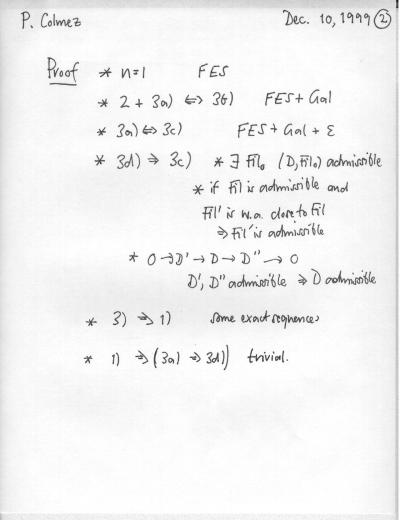 P. Colmez Dec. 10, 1999 ②
Proof * n=1 FES
* 2 + 3a) ⇔ 3b) FES + Gal
* 3a) ⇔ 3c) FES + Gal + ε
* 3d) ⇒ 3c) * ∃ Fil₀ (D, Fil₀) admissible
* if Fil is admissible and
Fil' is w.a. close to Fil
⇒ Fil' is admissible
* 0 → D' → D → D'' → 0
D', D'' admissible ⇒ D admissible
* 3) ⇒ 1) some exact sequences
* 1) ⇒ (3a) ⇒ 3d)) trivial.